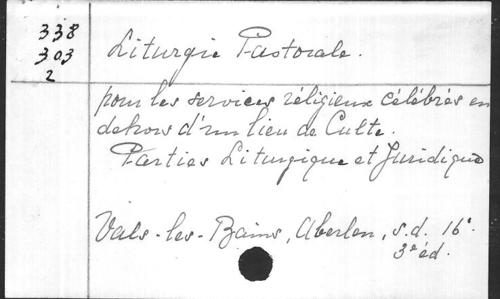 338
303
2
Liturgie Pastorale.
pour les services réligieux célébrés en
dehors d'un lieu de Culte.
Parties Liturgique et Juridique
Vals-les-Bains, Aberlen, s.d. 16°.
3e éd.